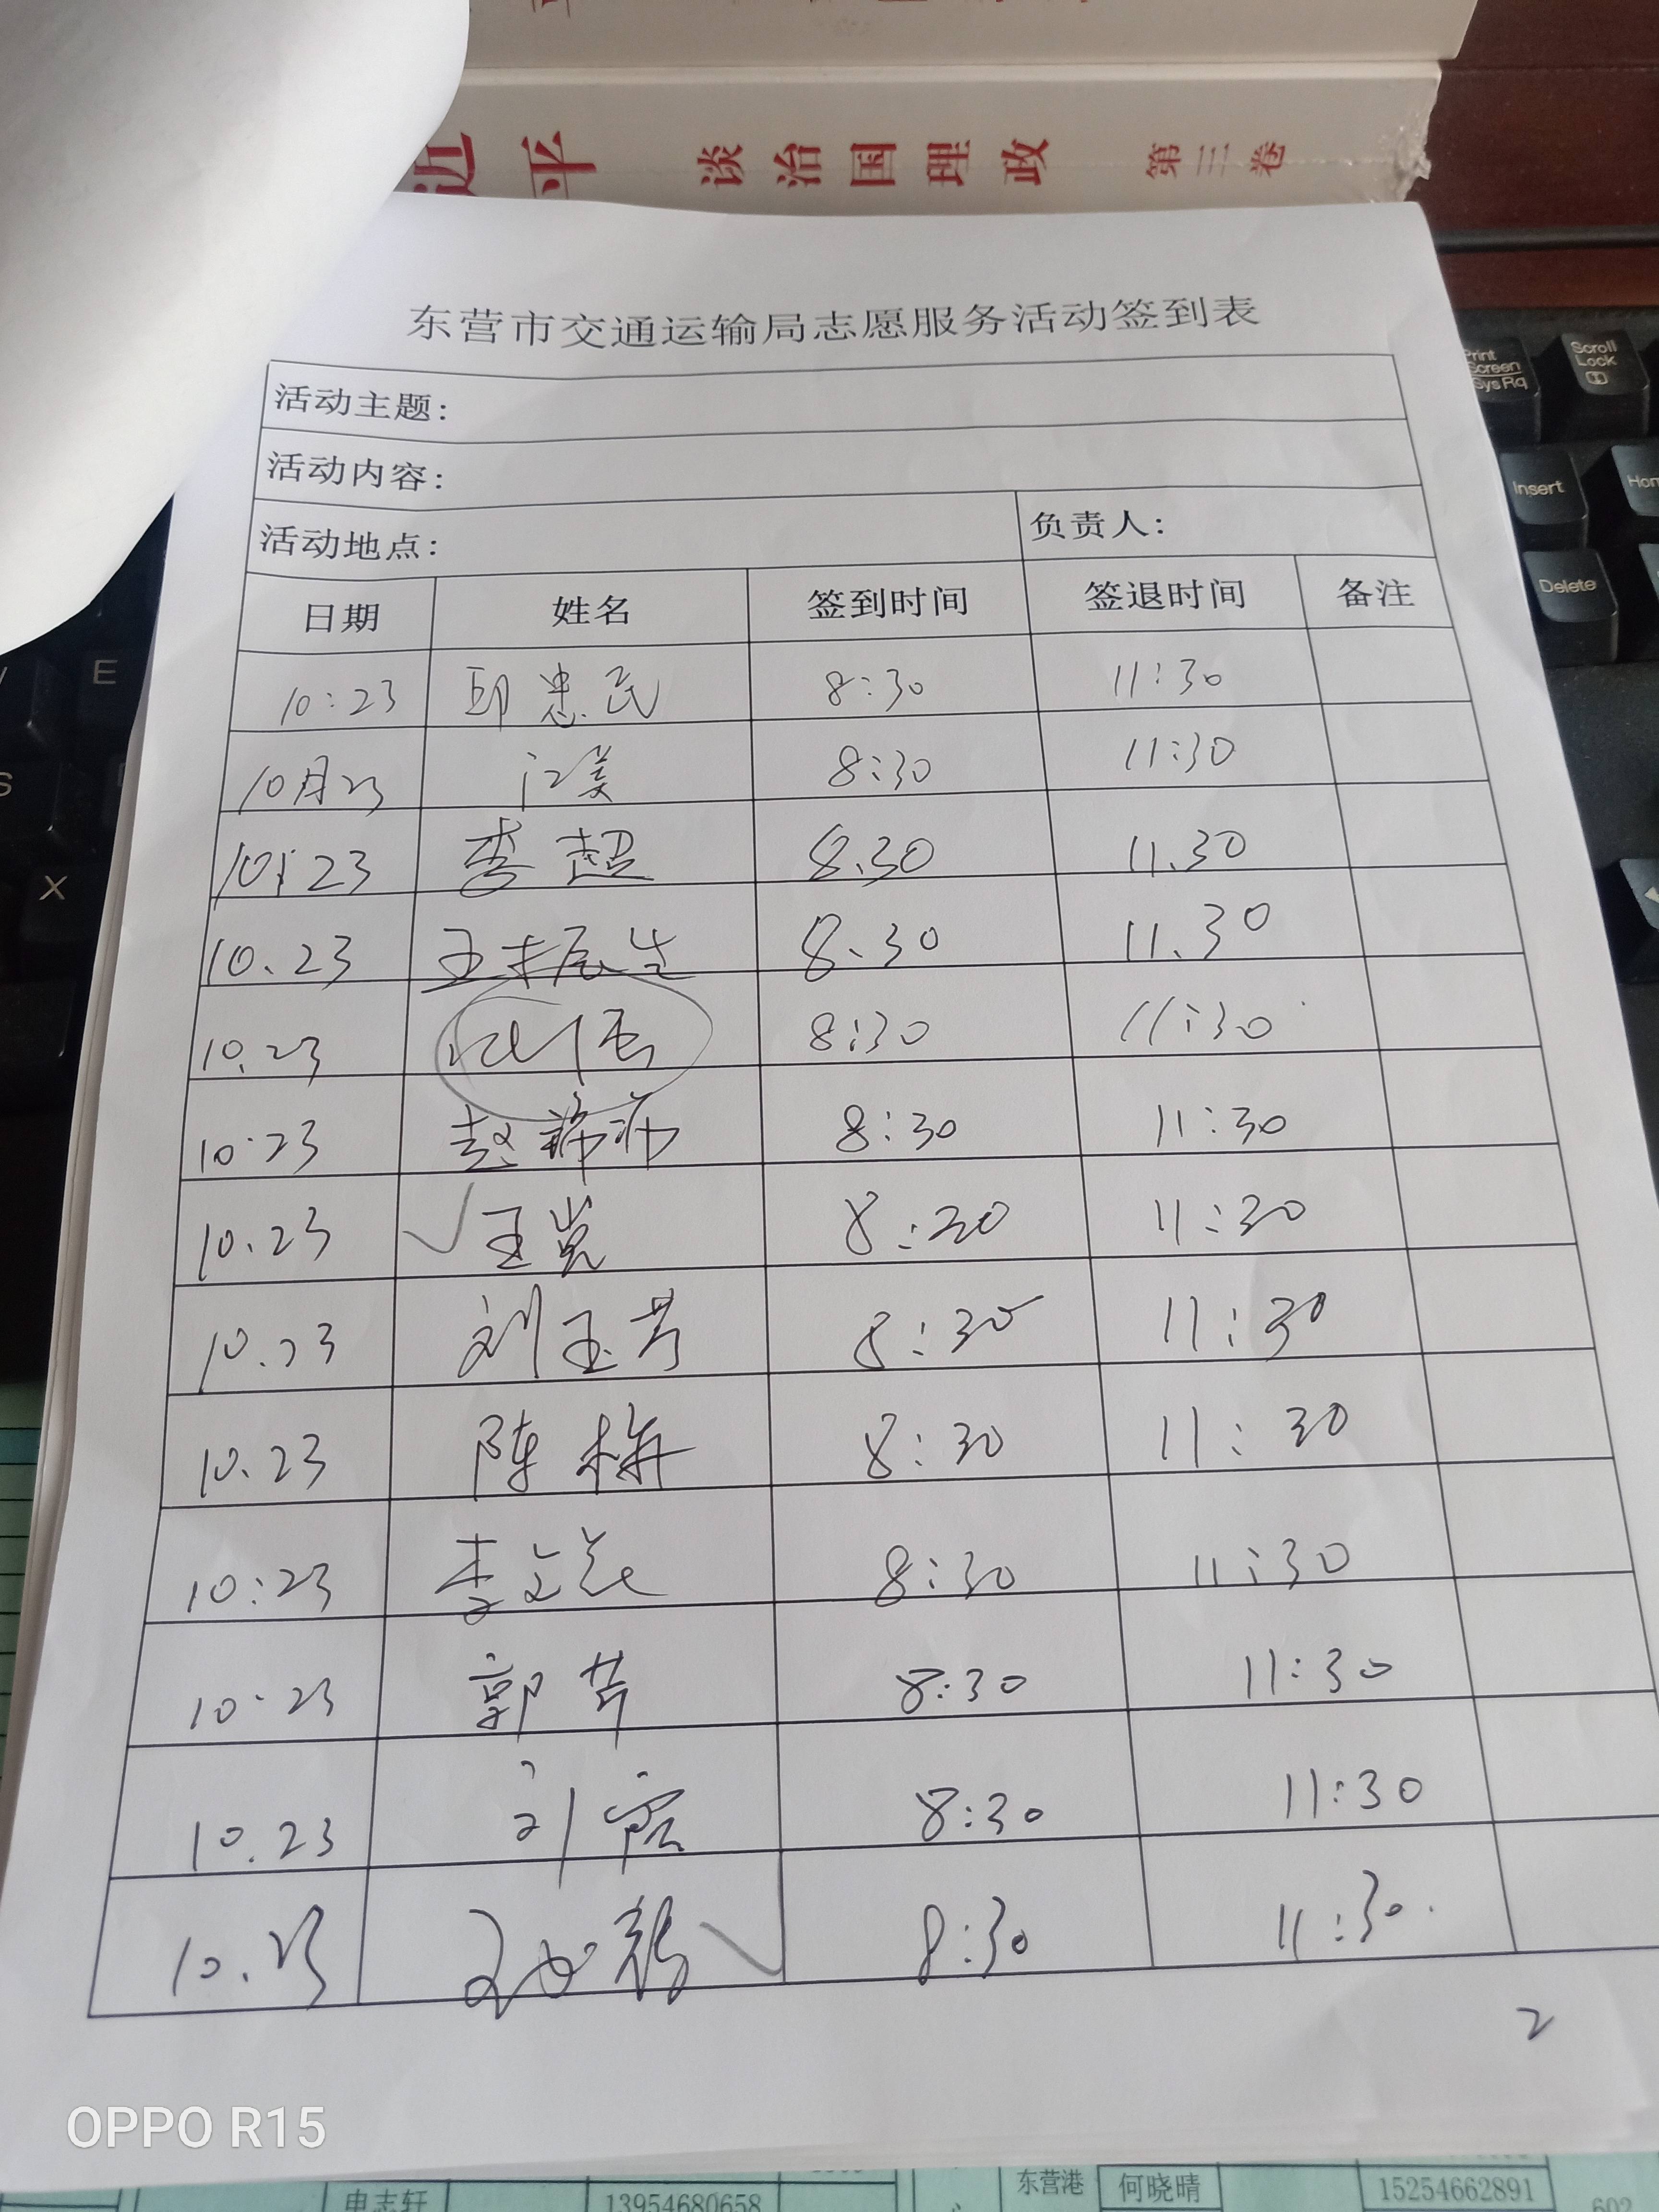 近平 谈治国理政 第三卷
Print Screen SysRq
Scroll Lock
Insert
Delete
E
X
东营市交通运输局志愿服务活动签到表
活动主题:
活动内容:
活动地点: 负责人:
日期 姓名 签到时间 签退时间 备注
10:23 邱忠民 8:30 11:30
10月23 江美 8:30 11:30
10:23 李超 8.30 11.30
10.23 王 生 8.30 11.30
10.23 8:30 11:30
10:23 赵 8:30 11:30
10.23 王岚 8:30 11:30
10.23 刘玉芳 8:30 11:30
10.23 陈梅 8:30 11:30
10:23 李文 8:30 11:30
10:23 郭芳 8:30 11:30
10.23 刘霞 8:30 11:30
10.23 8:30 11:30.
2
OPPO R15
申志轩 13954680658 东营港 何晓晴 15254662891 602